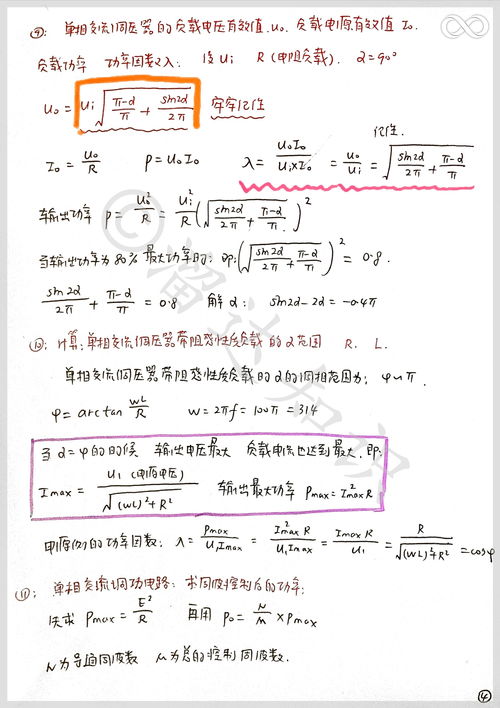 ⑨: 单相交流调压器的负载电压有效值.U₀. 负载电流有效值 I₀.
负载功率 功率因数入: 设 Ui R (电阻负载). α=90°
U₀ = Ui √(π-α/π + sin2α/2π) 牢牢记住
I₀ = U₀/R P = U₀I₀ λ = U₀I₀/Ui×I₀ = U₀/Ui = √(sin2α/2π + π-α/π) 记住.
输出功率 P = U₀²/R = Ui²/R (√(sin2α/2π + π-α/π))²
当输出功率为80% 最大功率时, 即: (√(sin2α/2π + π-α/π))² = 0.8.
sin2α/2π + π-α/π = 0.8 解 α: sin2α-2α = -0.4π
⑩: 计算: 单相交流调压器带阻感性负载的α范围 R. L.
单相交流调压器带阻感性负载时α的调相范围为: φ~π.
φ = arctan WL/R W = 2πf = 100π = 314
当 α=φ的时候 输出电压最大 负载电流也达到最大. 即:
Imax = U₁ (电源电压)/√((WL)²+R²) 输出最大功率 Pmax = I²max R
电源侧的功率因数: λ = Pmax/U₁Imax = I²max R/U₁Imax = Imax R/U₁ = R/√((WL)²+R²) = cosφ
⑪: 单相交流调功电路: 求周波控制后的功率:
先求 Pmax = E²/R 再用 P₀ = N/M × Pmax
N为导通周波数 M为总的控制周波数.
©溜达知识
④